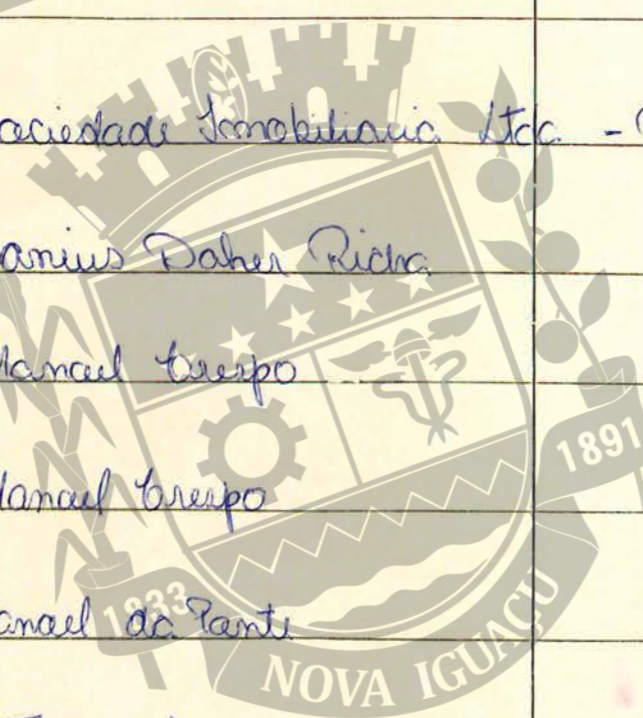 ociedade Imobiliaria Ltda. -
Daher Richa
Manoel Crespo
Manoel Crespo
anoel da
1891
1833
NOVA IGUAÇU